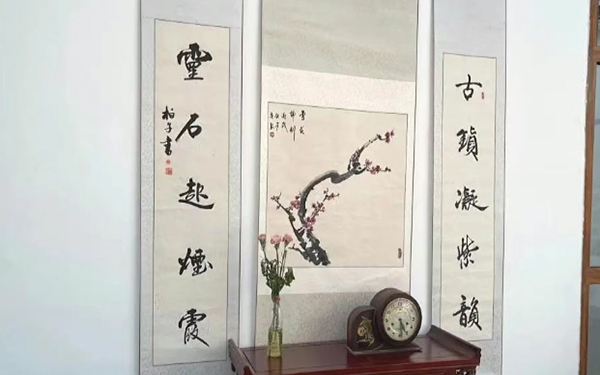 古鎮凝紫韻
靈石起煙霞
柏子書